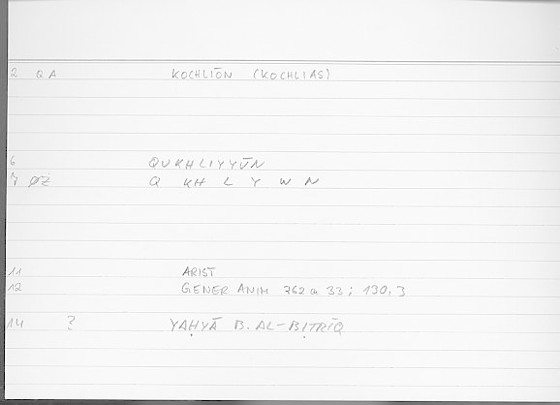 2 GA KOCHLIŌN (KOCHLIAS)
6 QUKHLIYYŪN
7 ØZ Q KH L Y W N
11 ARIST
12 GENER ANIM 762 a 33; 130.3
14 ? YAḤYĀ B. AL-BIṬRĪQ